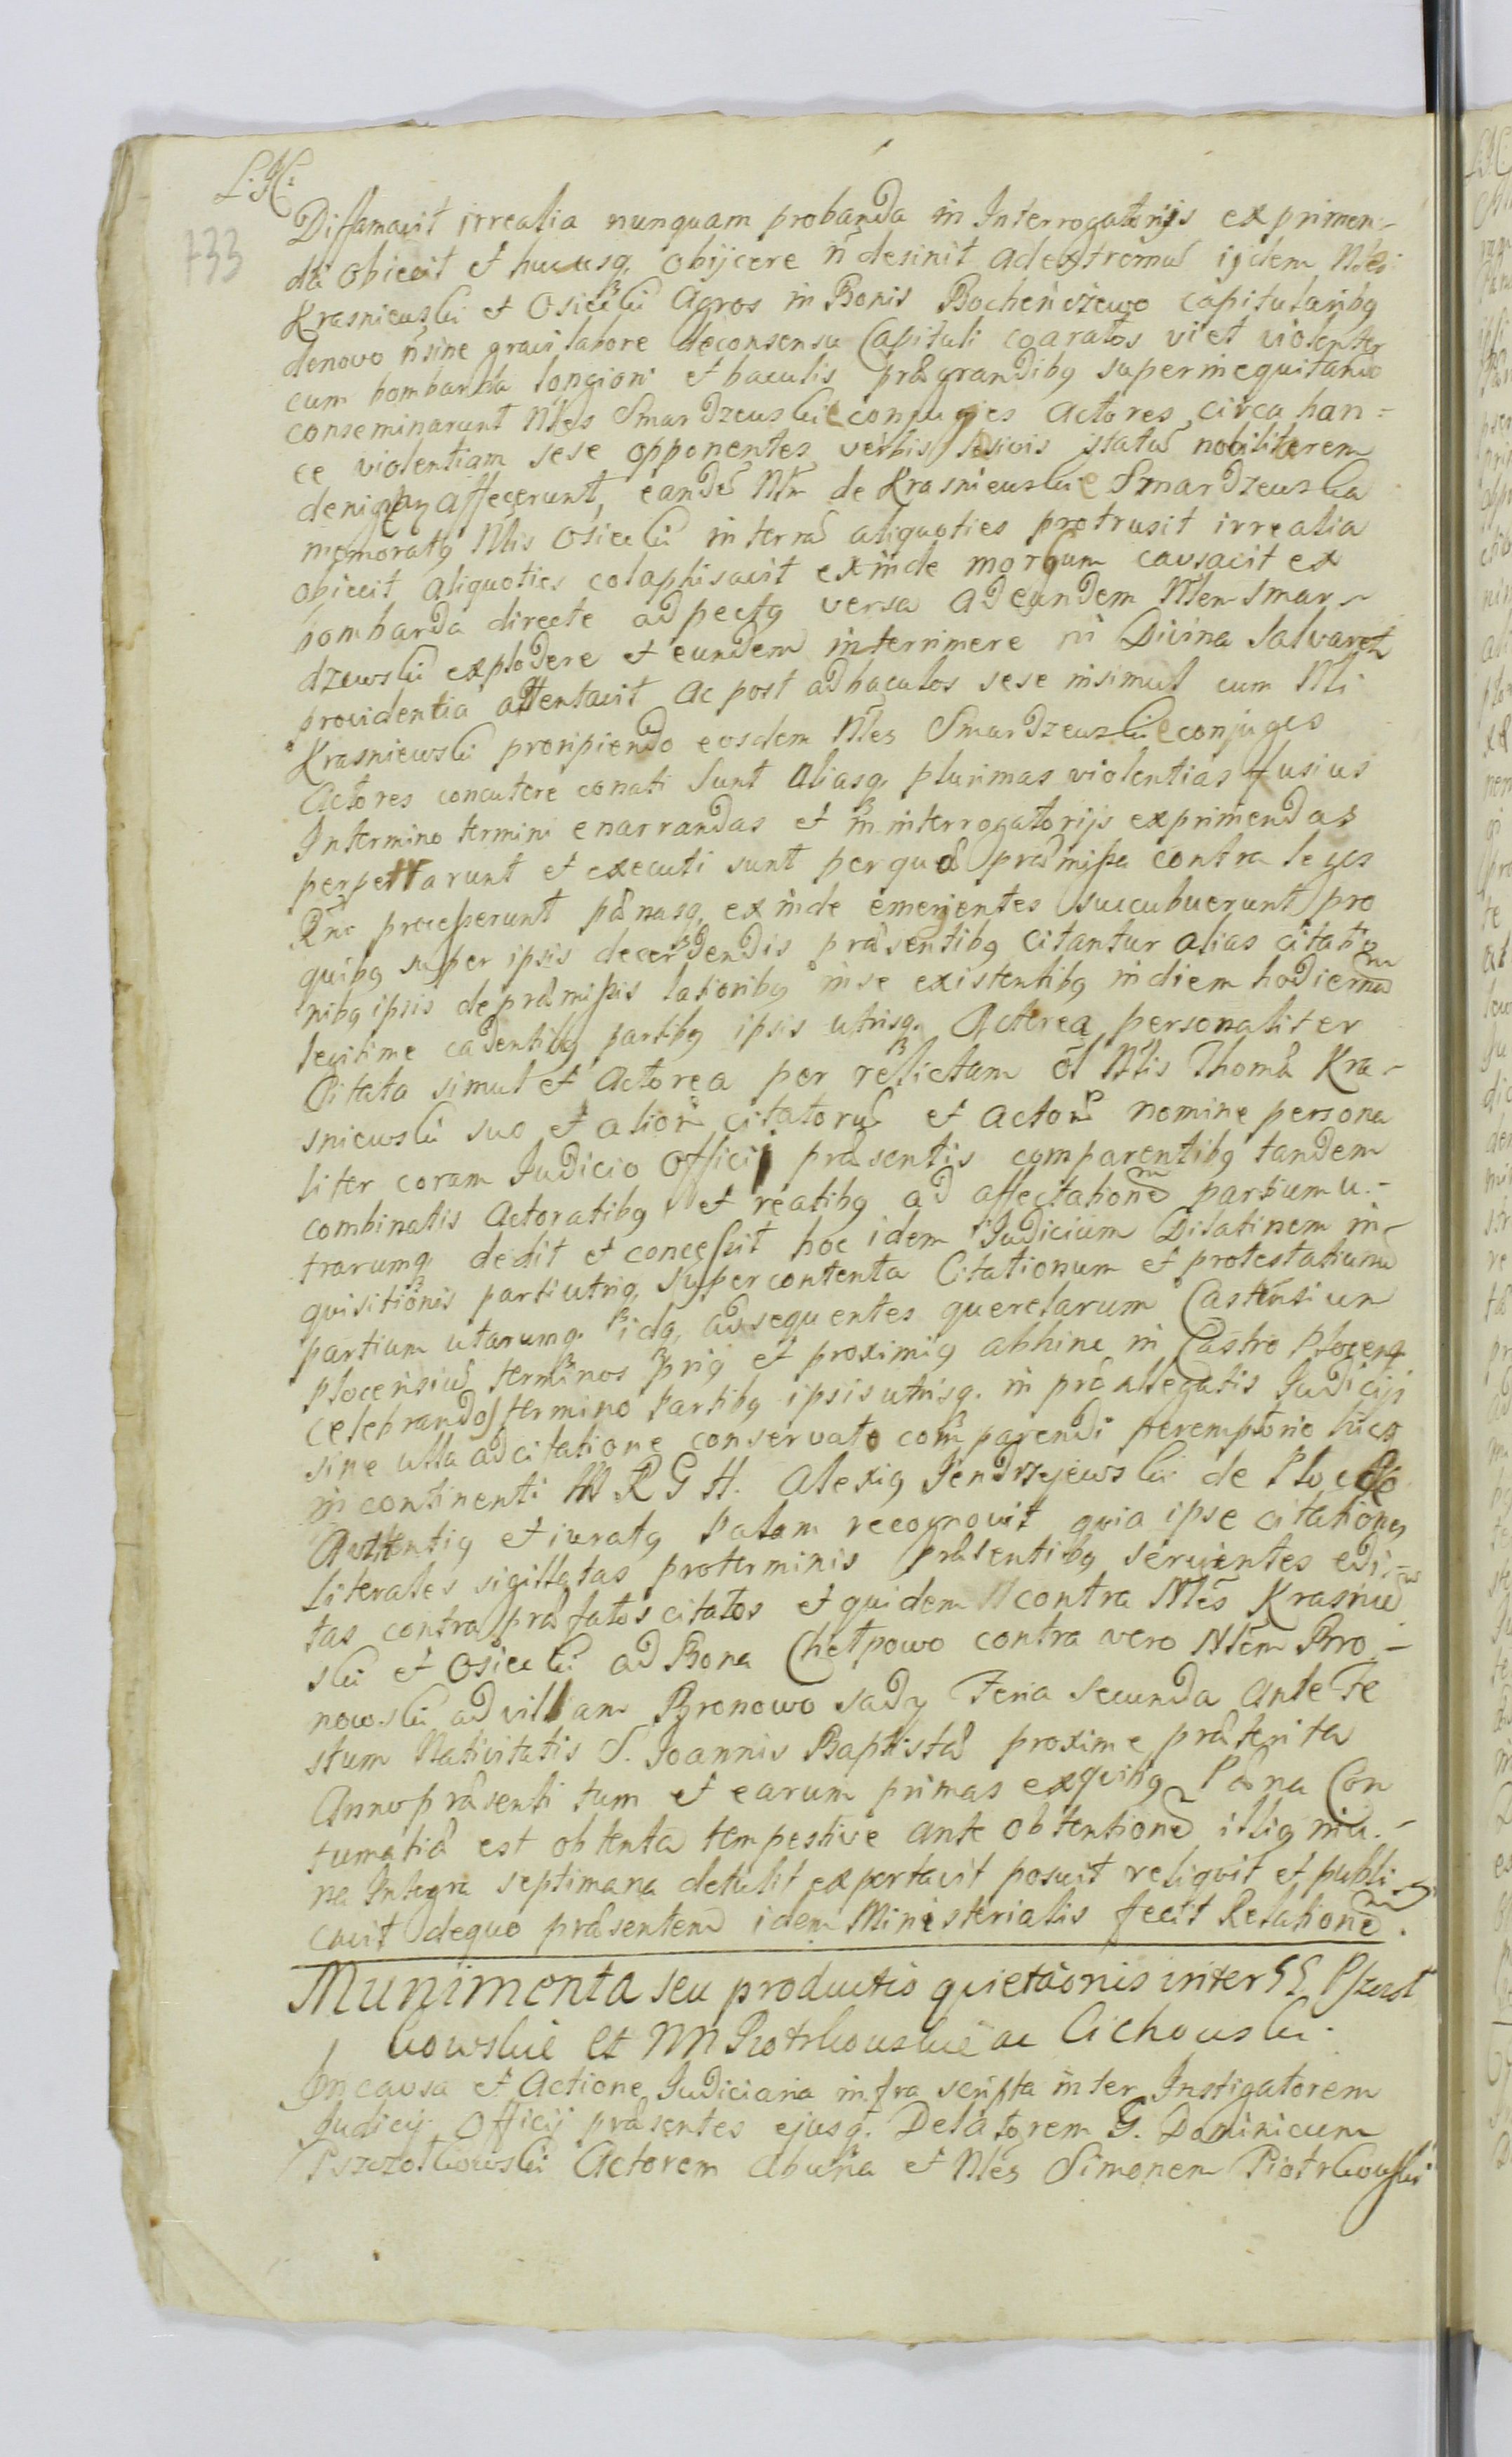 L. H.
733
Diffamavit irrealia nunquam probanda in Interrogatorijs exprimen-
da obiecit et hucusq. obijcere ñ desinit ad extremũ ijdem Nles
Krasniewski et Osiecki Agros in Bonis Bocheńczewo capitularibq
denovo ñ sine gravi labore de consensu Capituli coaratos vi et violenter
cum bombarda longiori et baculis prægrandibq superinequitando
conseminarunt Nles Smardzewskie conjuges Actores circa han=
ce violentiam sese opponentes verbis lesivis statũ nobilitarem
affecerunt, eandẽ Nlm de Krasniewskie Smardzewska
memoratq Nlis Osiecki in terrã aliquoties protrusit irrealia
obiecit aliquoties colaphisavit exinde morbum causavit ex
bombarda directe ad pectq versa ad eundem Nlem Smar-
dzewski explodere et eundem interimere ni Divina salvaret
providentia attentavit ac post ad baculos sese insimul cum Nli
Krasniewski proripiendo eosdem Nles Smardzewskie conjuges
Actores concutere conati sunt aliasq. plurimas violentias fusius
In termino termini enarrandas et in interrogatorijs exprimendas
perpetrarunt et executi sunt per quæ præmissa contra leges
Rni processerunt pænasq. exinde emergentes succubuerunt pro
quibq super ipsis decernendis præsentibq citantur alias citatio
nibq ipsis de præmissis latioribq in se existentibq in diem hodiernam
legitime cadentibq partibq ipsis utrisq. Actorea personaliter
Citata simul et Actorea per relictam ol Nlis Thomæ Kra-
sniewski suo et alior citatorũ et actorũ nomine persona
liter coram Iudicio Officij præsentis comparentibq tandem
combinatis Actoratibq et reatibq ad affectationem partium u-
trarumq. dedit et concessit hoc idem Iudicium Dilationem in-
quisitionis parti utriq. super contenta Citationum et protestationum
partium utrarumq. idq. ad sequentes querelarum Castrensium
Plocensiũ terminos priq et proximiq abhinc in Castro Plocen
celebrandos termino partibq ipsis utrisq. in præallegatis Iudicijs
sine ulla adcitatione conservato comparendi peremptorio hicq
in continenti M R G H. Alexiq Jendrzyiewski de Plocko
Autentiq et iuratq Palam recognovit quia ipse citationes
literales sigillatas pro terminis præsentibq servientes edi-
tas contra præfatos citatos et quidem contra Nles Krasniew
ski et Osiecki ad Bona Chełpowo contra vero Nlem Bro-
nowski ad villam Bronowo sady Feria secunda ante Fe
stum Nativitatis S. Joannis Baptistæ proxime præterita
Anno præsenti tum et earum primas ex quibq Pæna Con
tumatiæ est obtenta tempestive ante obtentionem illiq
na Integra septimana detulit exportavit posuit reliquit et publi
cavit de quo præsentem idem Ministerialis fecit Relationem.
Munimenta seu productio quietaõnis inter GG Pszczoł
kowskie et NN Piotrkowskie ac Cichowski.
In causa et Actione Iudiciaria infra scripta inter Instigatorem
Iudicij Officij præsentis ejusq. Delatorem G. Dominicum
Pszczołkowski Actorem ab una et Nles Simonem Piotrkowski